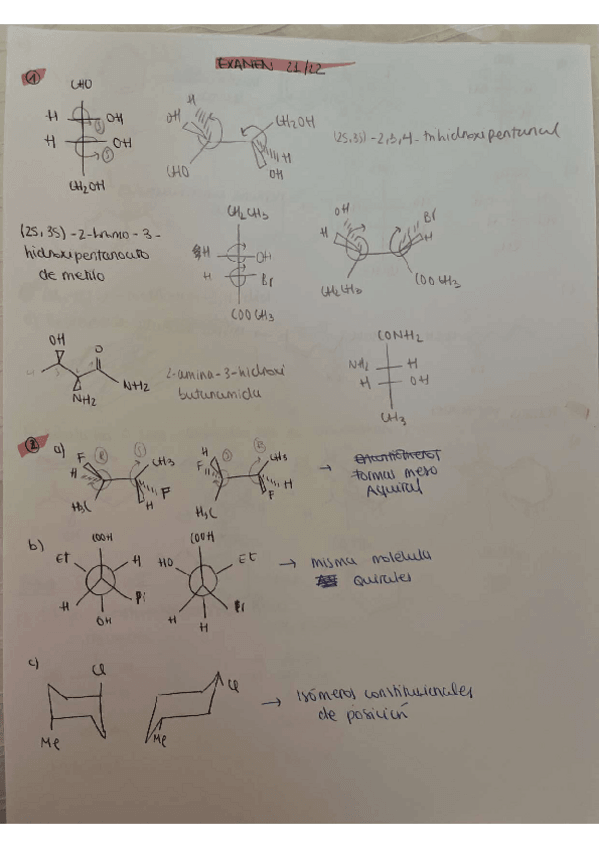 EXAMEN 21/22
①
CHO
H OH
H OH
CH2OH
H
OH
CH2OH
H
CHO
OH
(2S,3S)-2,3,4-trihidroxipentanal
(2S,3S)-2-bromo-3-
hidroxipentanoato
de metilo
CH2CH3
H OH
H Br
COOCH3
OH
H
Br
H
CH2CH3
COOCH3
OH
O
NH2
NH2
2-amina-3-hidroxi
butanamida
CONH2
NH2 H
H OH
CH3
② a)
F
H
H3C
R
S
CH3
F
H
H
F
H3C
CH3
H
F
→ formas meso
Aquiral
b)
COOH
Et H
H
OH
COOH
HO Et
H
H
Br
→ misma molécula
quirales
c)
Cl
Me
Cl
Me
→ Isómeros constitucionales
de posición